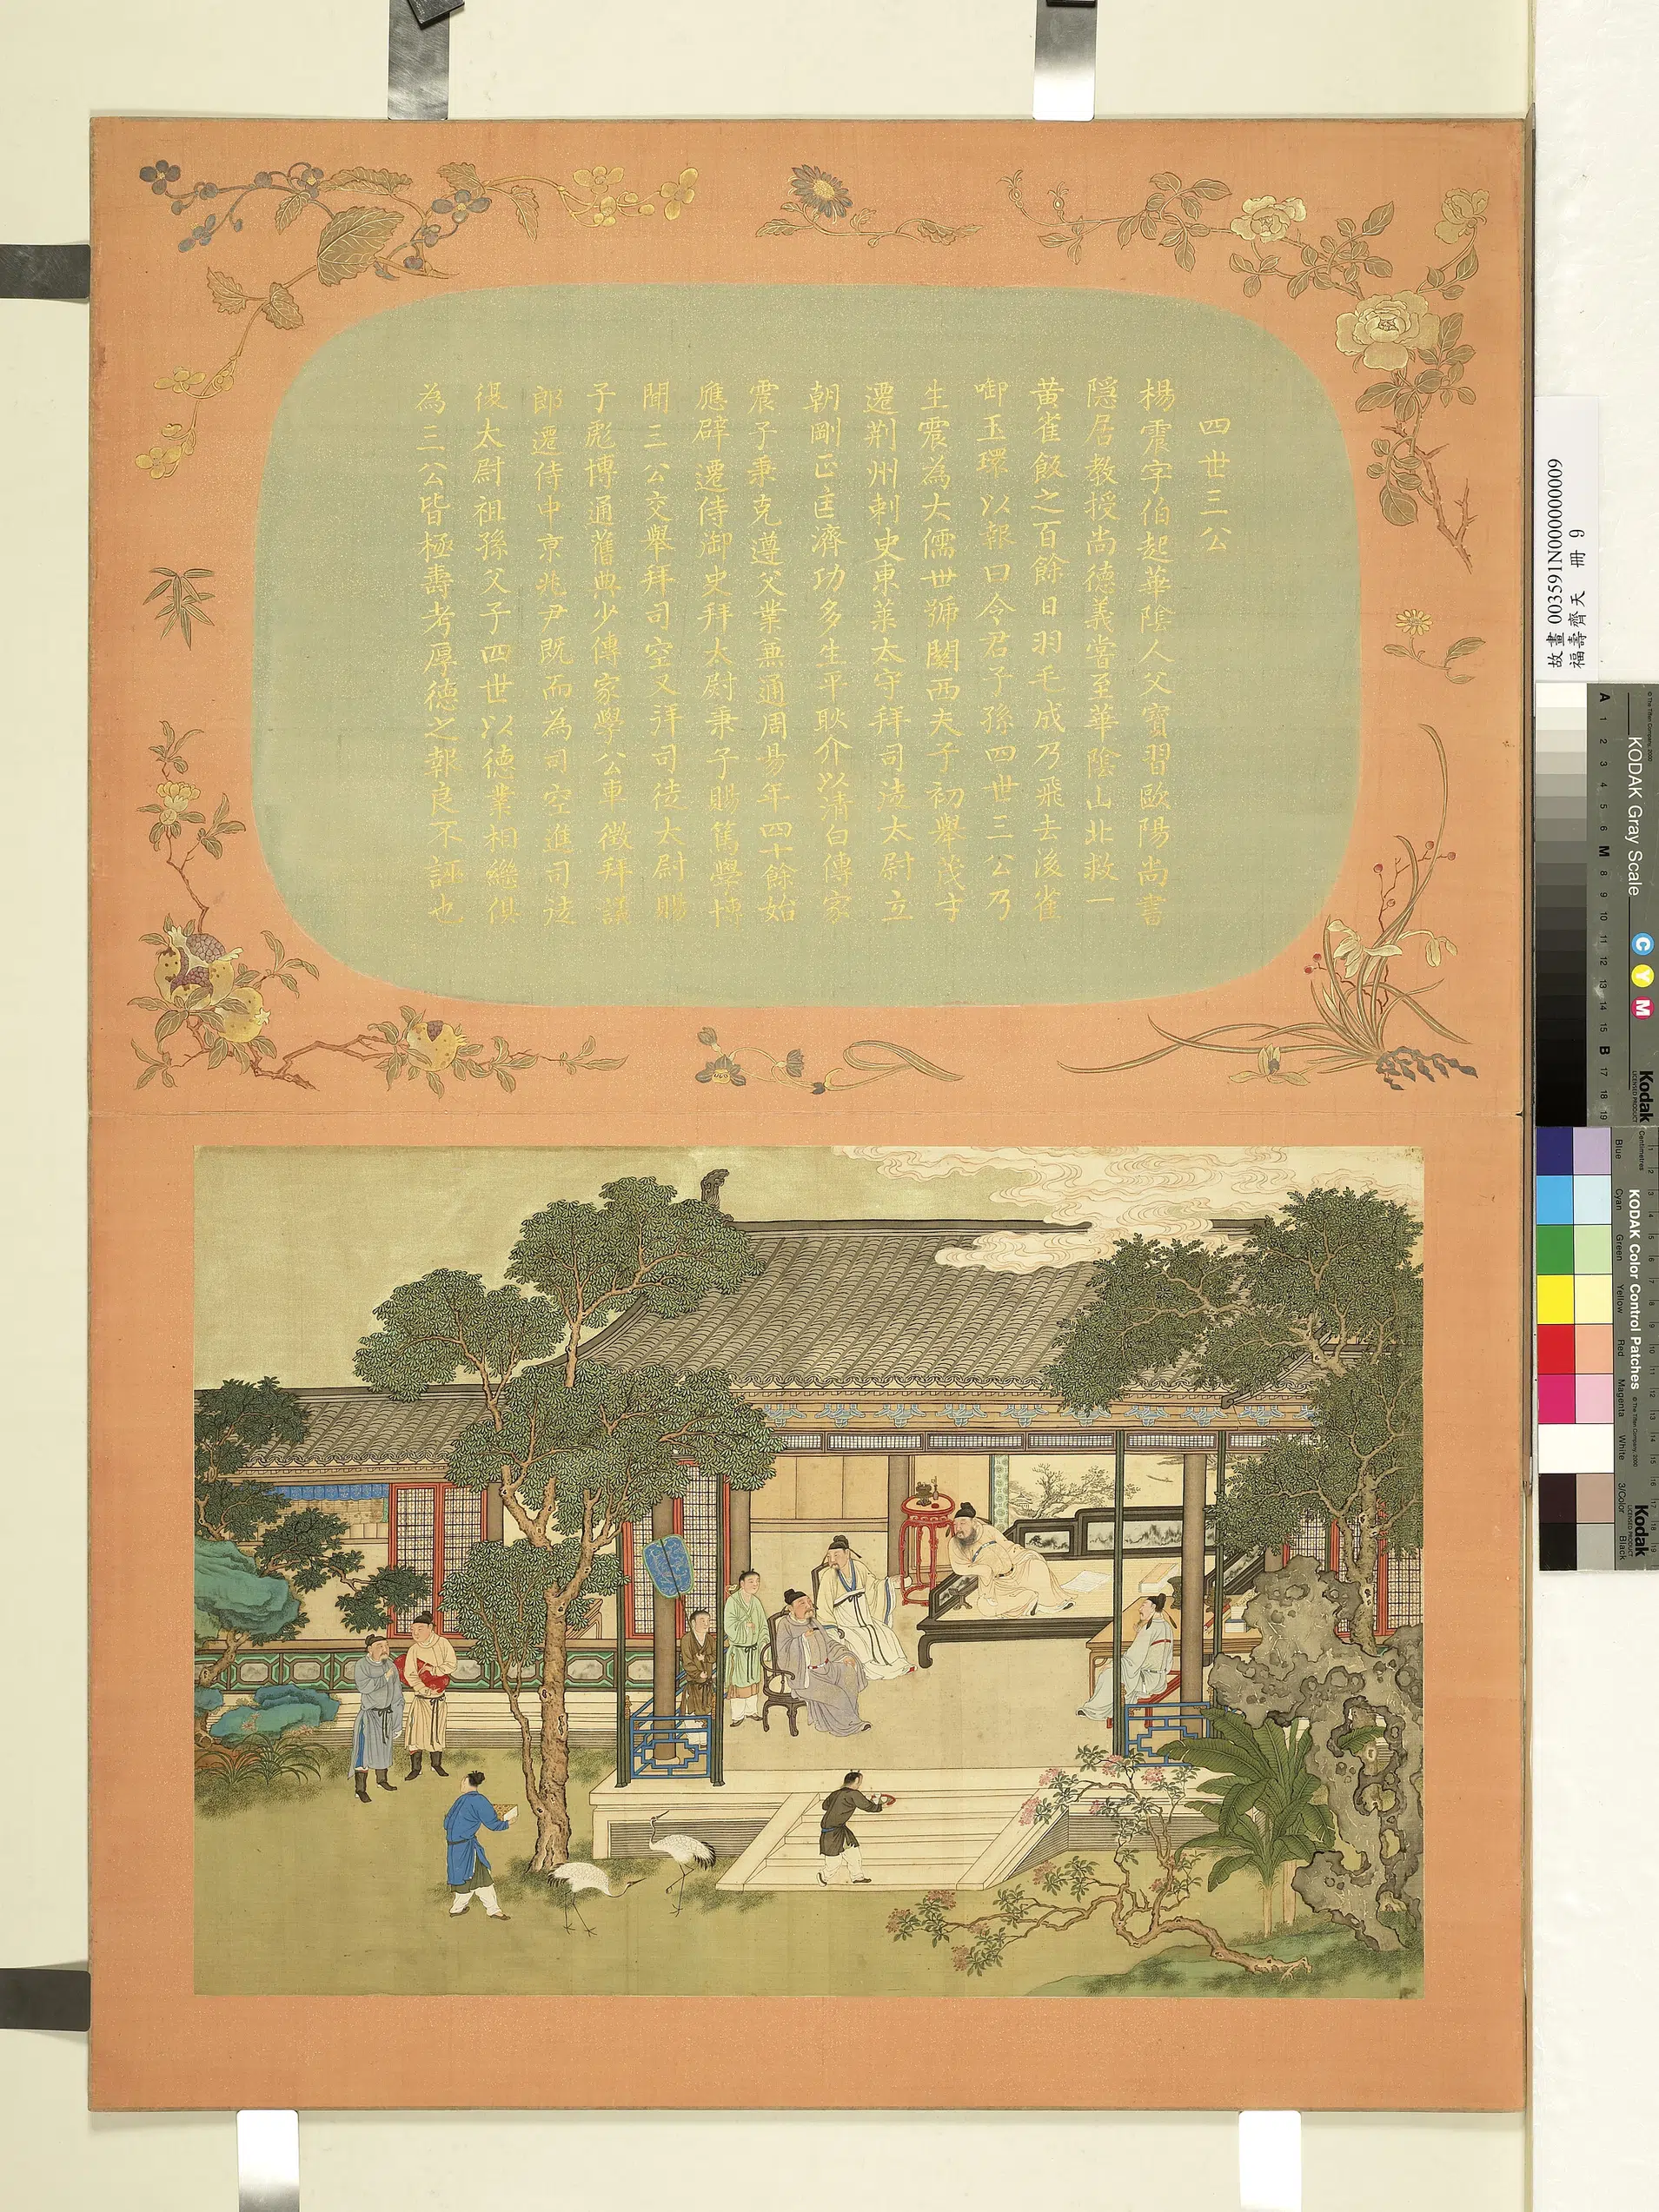 四世三公
楊震字伯起華陰人父寶習歐陽尚書
隱居教授尚德義嘗至華陰山北救一
黃雀飯之百餘日羽毛成乃飛去後雀
啣玉環以報曰令君子孫四世三公乃
生震為大儒世號關西夫子初舉茂才
遷荆州刺史東萊太守拜司徒太尉立
朝剛正匡濟功多生平耿介以清白傳家
震子秉克遵父業兼通周易年四十餘始
應辟遷侍御史拜太尉秉子賜篤學博
聞三公交舉拜司空又拜司徒太尉賜
子彪博通舊典少傳家學公車徵拜議
郎遷侍中京兆尹既而為司空進司徒
復太尉祖孫父子四世以德業相繼俱
為三公皆極壽考厚德之報良不誣也
故畫 003591N000000009
福壽齊天 冊 9
KODAK Gray Scale
C Y M
Kodak
LICENSED PRODUCT
A 1 2 3 4 5 6 M 8 9 10 11 12 13 14 15 B 17 18 19
KODAK Color Control Patches
Kodak
LICENSED PRODUCT
Centimetres
Blue Cyan Green Yellow Red Magenta White 3/Color Black